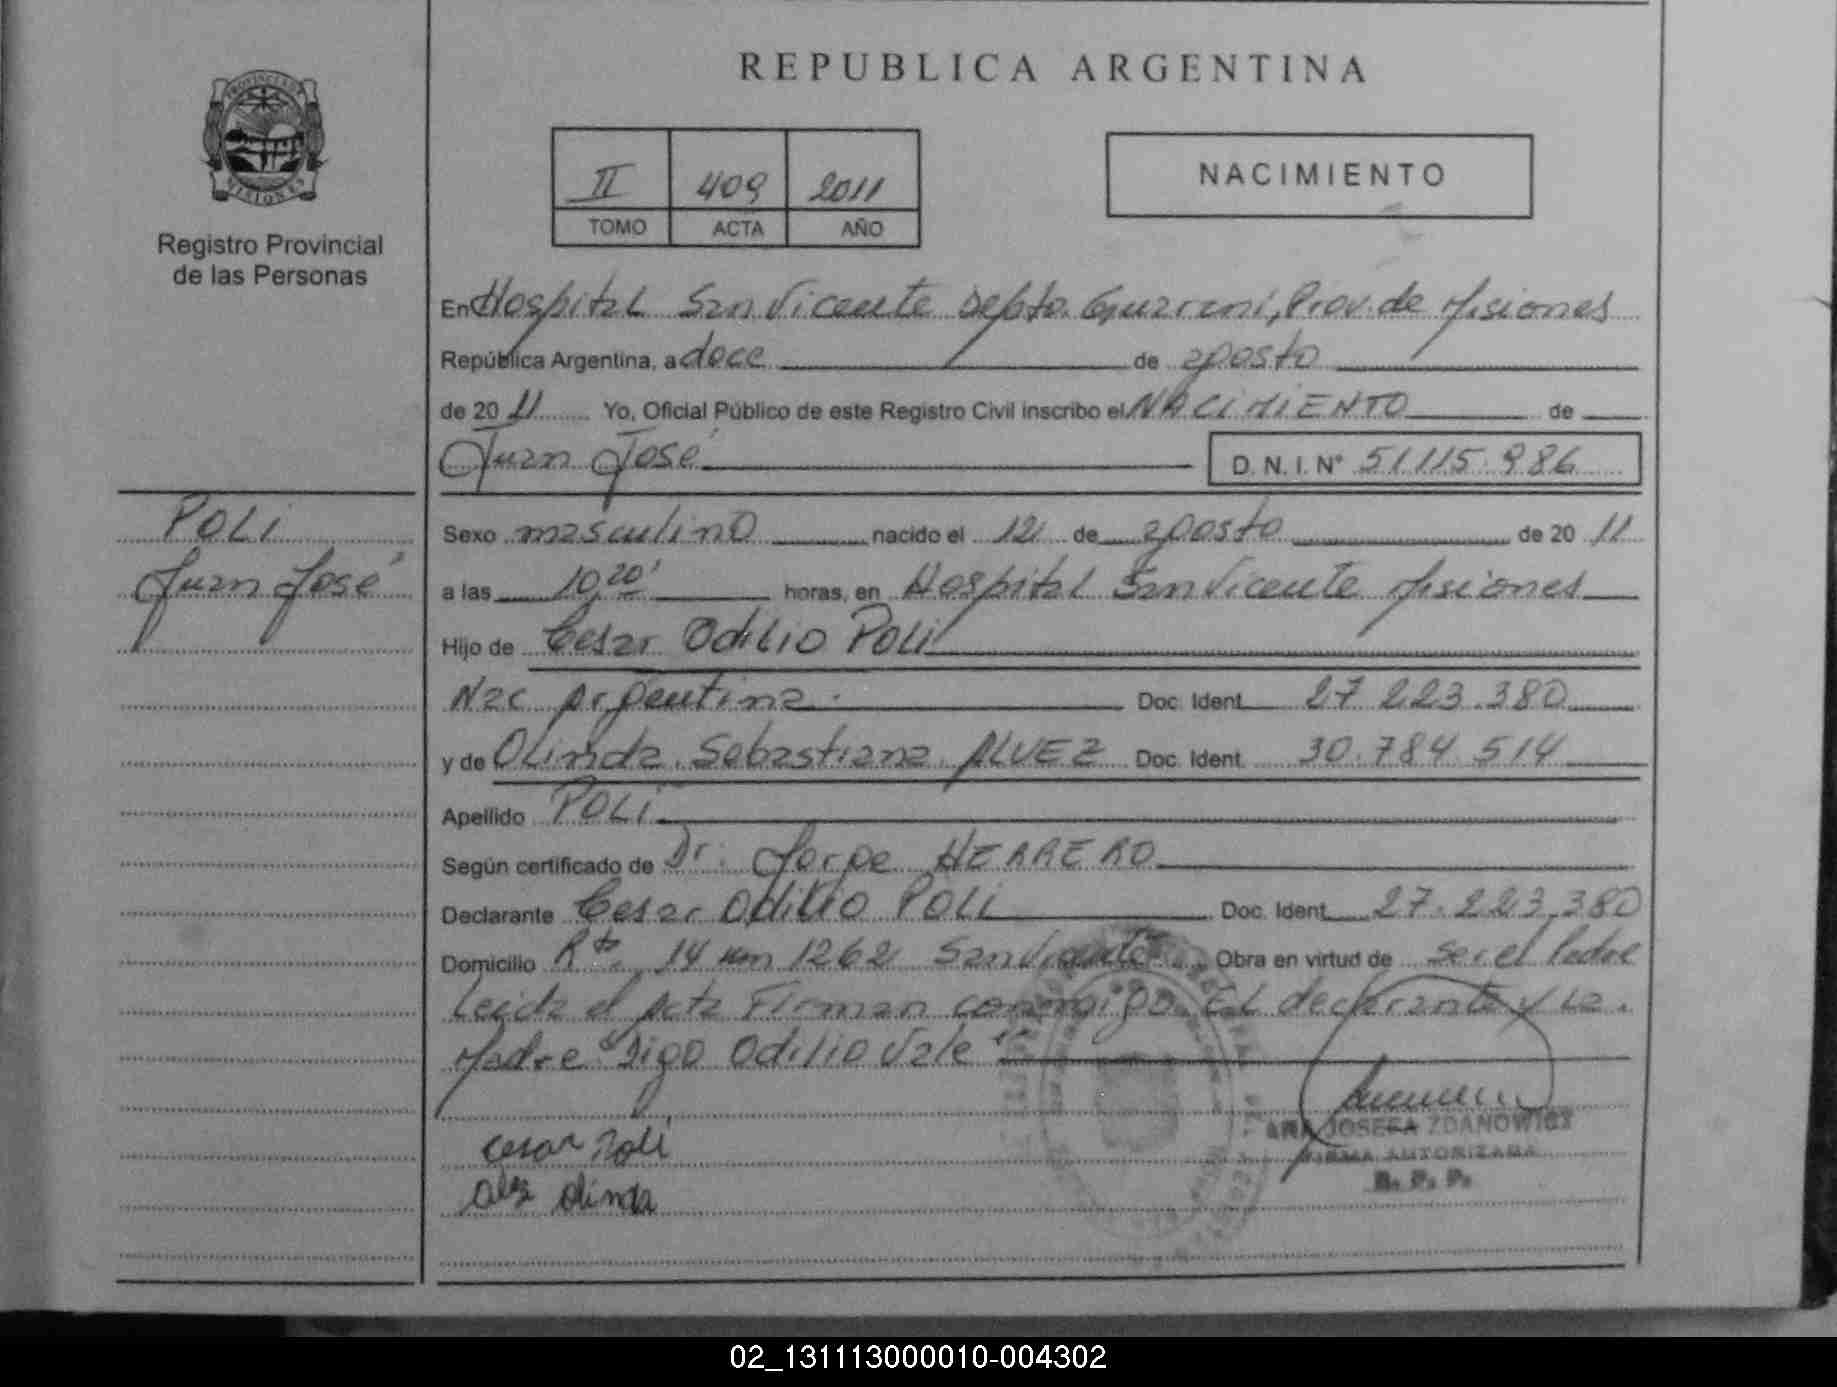 REPUBLICA ARGENTINA
PROVINCIA DE
MISIONES
Registro Provincial
de las Personas
II 409 2011
TOMO ACTA AÑO
NACIMIENTO
En Hospital San Vicente Depto. Guarani, Prov. de Misiones
República Argentina, a doce de agosto
de 20 11 Yo, Oficial Público de este Registro Civil inscribo el NACIMIENTO de
Juan José D.N.I. Nº 51.115.986
POLI
Juan José
Sexo masculino nacido el 12 de agosto de 20 11
a las 10,20' horas, en Hospital San Vicente Misiones
Hijo de Cesar Odilio POLI
Nac Argentina. Doc. Ident. 27.223.380
y de Olinda Sebastiana ALVEZ Doc. Ident. 30.784.514
Apellido POLI
Según certificado de Dr. Jorge HERRERO
Declarante Cesar Odilio POLI Doc. Ident. 27.223.380
Domicilio Rta. 14 km 1262 San Vicente Obra en virtud de ser el Padre
Leida el Acta Firman conmigo El declarante y La
Madre "Digo Odilio Vale"
Cesar Poli
Alvez Olinda
ANA JOSEFA ZDANOWICZ
FIRMA AUTORIZADA
R. P. P.
02_131113000010-004302